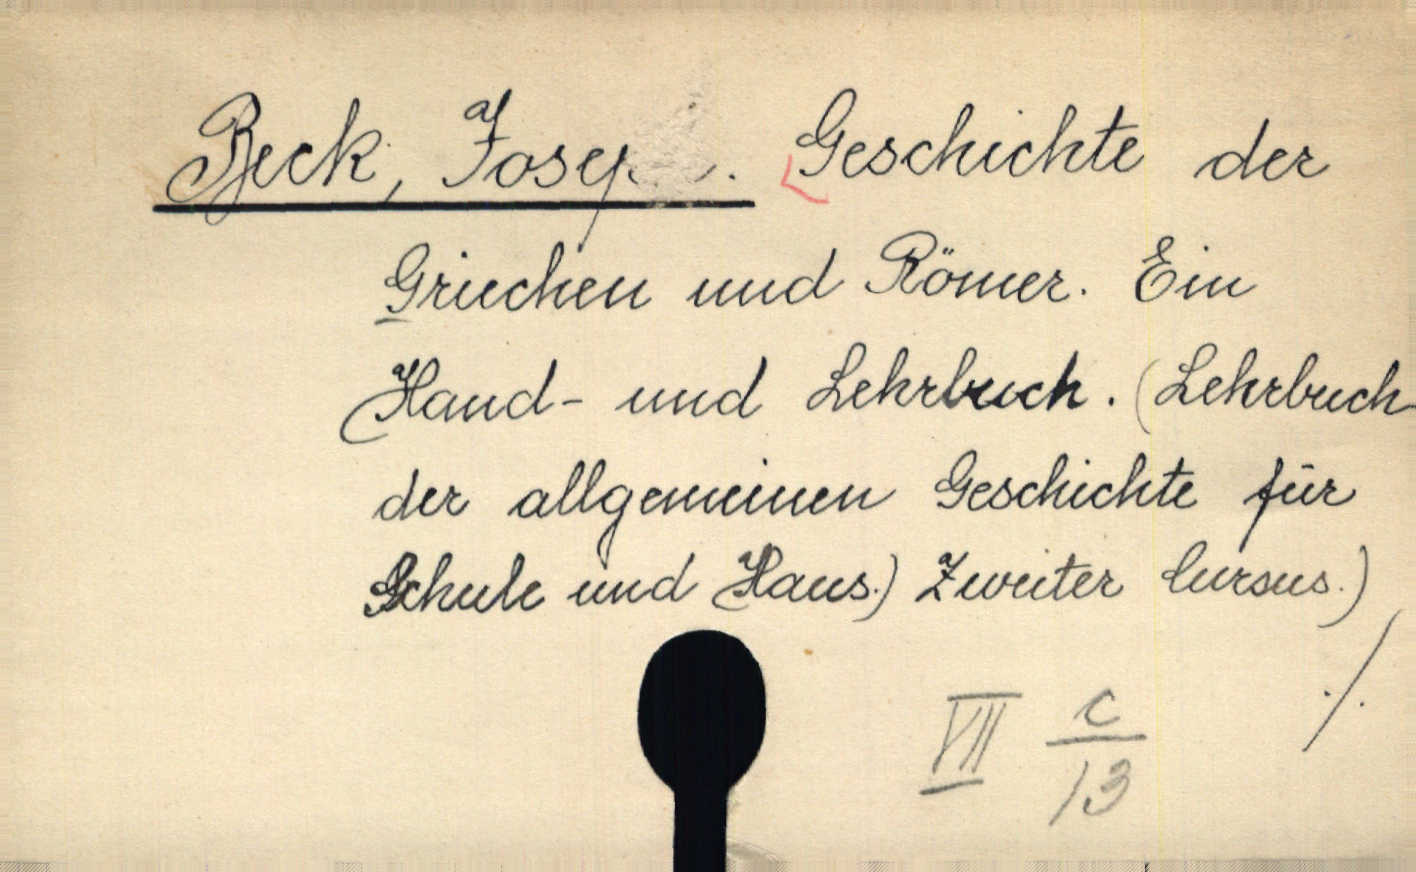 Beck, Josep. Geschichte der
Griechen und Römer. Ein
Hand- und Lehrbuch. (Lehrbuch
der allgemeinen Geschichte für
Schule und Haus.) Zweiter Cursus.)
./.
VII c/13